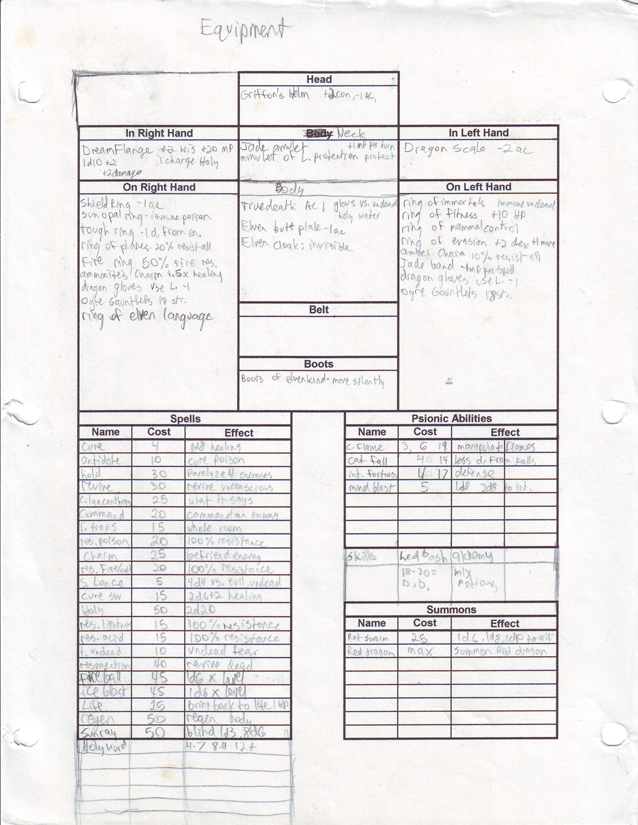 Equipment
Head
Griffon's Helm +2con, -1ac,
In Right Hand
DreamFlange +2 Wis +20 MP
1d10+2 1 charge Holy
+2damage
Body Neck
Jade amulet +1MP per turn
amulet of L. protection protect
In Left Hand
Dragon Scale -2ac
On Right Hand
Shield Ring -1ac
sun opal ring-immune poison
tough ring -1d. from en.
ring of planes-20% resist all
Fire ring 50% fire res.
ammonite's Charm 1.5x healing
dragon gloves use L. -1
Ogre Gauntlets 18 str.
ring of elven language
Body
True death AC 1 glows vs. undead
holy water
Elven butt plate -1ac
Elven Cloak: invisible
On Left Hand
ring of immortals immune undead
ring of fitness +10 HP
ring of mammal control
ring of evasion +2 dex +1 move
amber Charm 10% resist all
Jade band -1mp per spell
dragon gloves use L. -1
Ogre Gauntlets 18str.
Belt
Boots
Boots of elvenkind-move silently
Spells
Name Cost Effect
Cure 4 healing
antidote 10 cure poison
hold 30 Paralyze 4 enemies
revive 30 revive unconscious
25 what it says
Command 20 command an enemy
traps 15 whole room
res. poison 20 100% resistance
Charm 25 befriend enemy
20 100% resistance
S. Lance 5 4d4 vs. evil, undead
Cure SW 15 2d6+2 healing
Holy 50 2d20
15 100% resistance
res. acid 15 100% resistance
t. undead 10 undead fear
ressurection 40 revive dead
Fireball 45 1d6 x level
ice blast 45 1d6 x level
Life 25 bring back to life 1 HP
regen 50 regen body
Sunray 50 blind 1d3, 8d6
Holy Word 4-7 8-11 12+
Psionic Abilities
Name Cost Effect
C. Flame 3, 6 19 manipulate flames
Cat fall 4 0 14 less d. from falls
int. fortress 4 0 17 defense
mind blast 5 1d8 2d8 to int.
Skills head bash alchemy
18-20= mix
D.D. potions
Summons
Name Cost Effect
Rat swarm 25 1d6, 1d8, to all
Red dragon max summon Red dragon